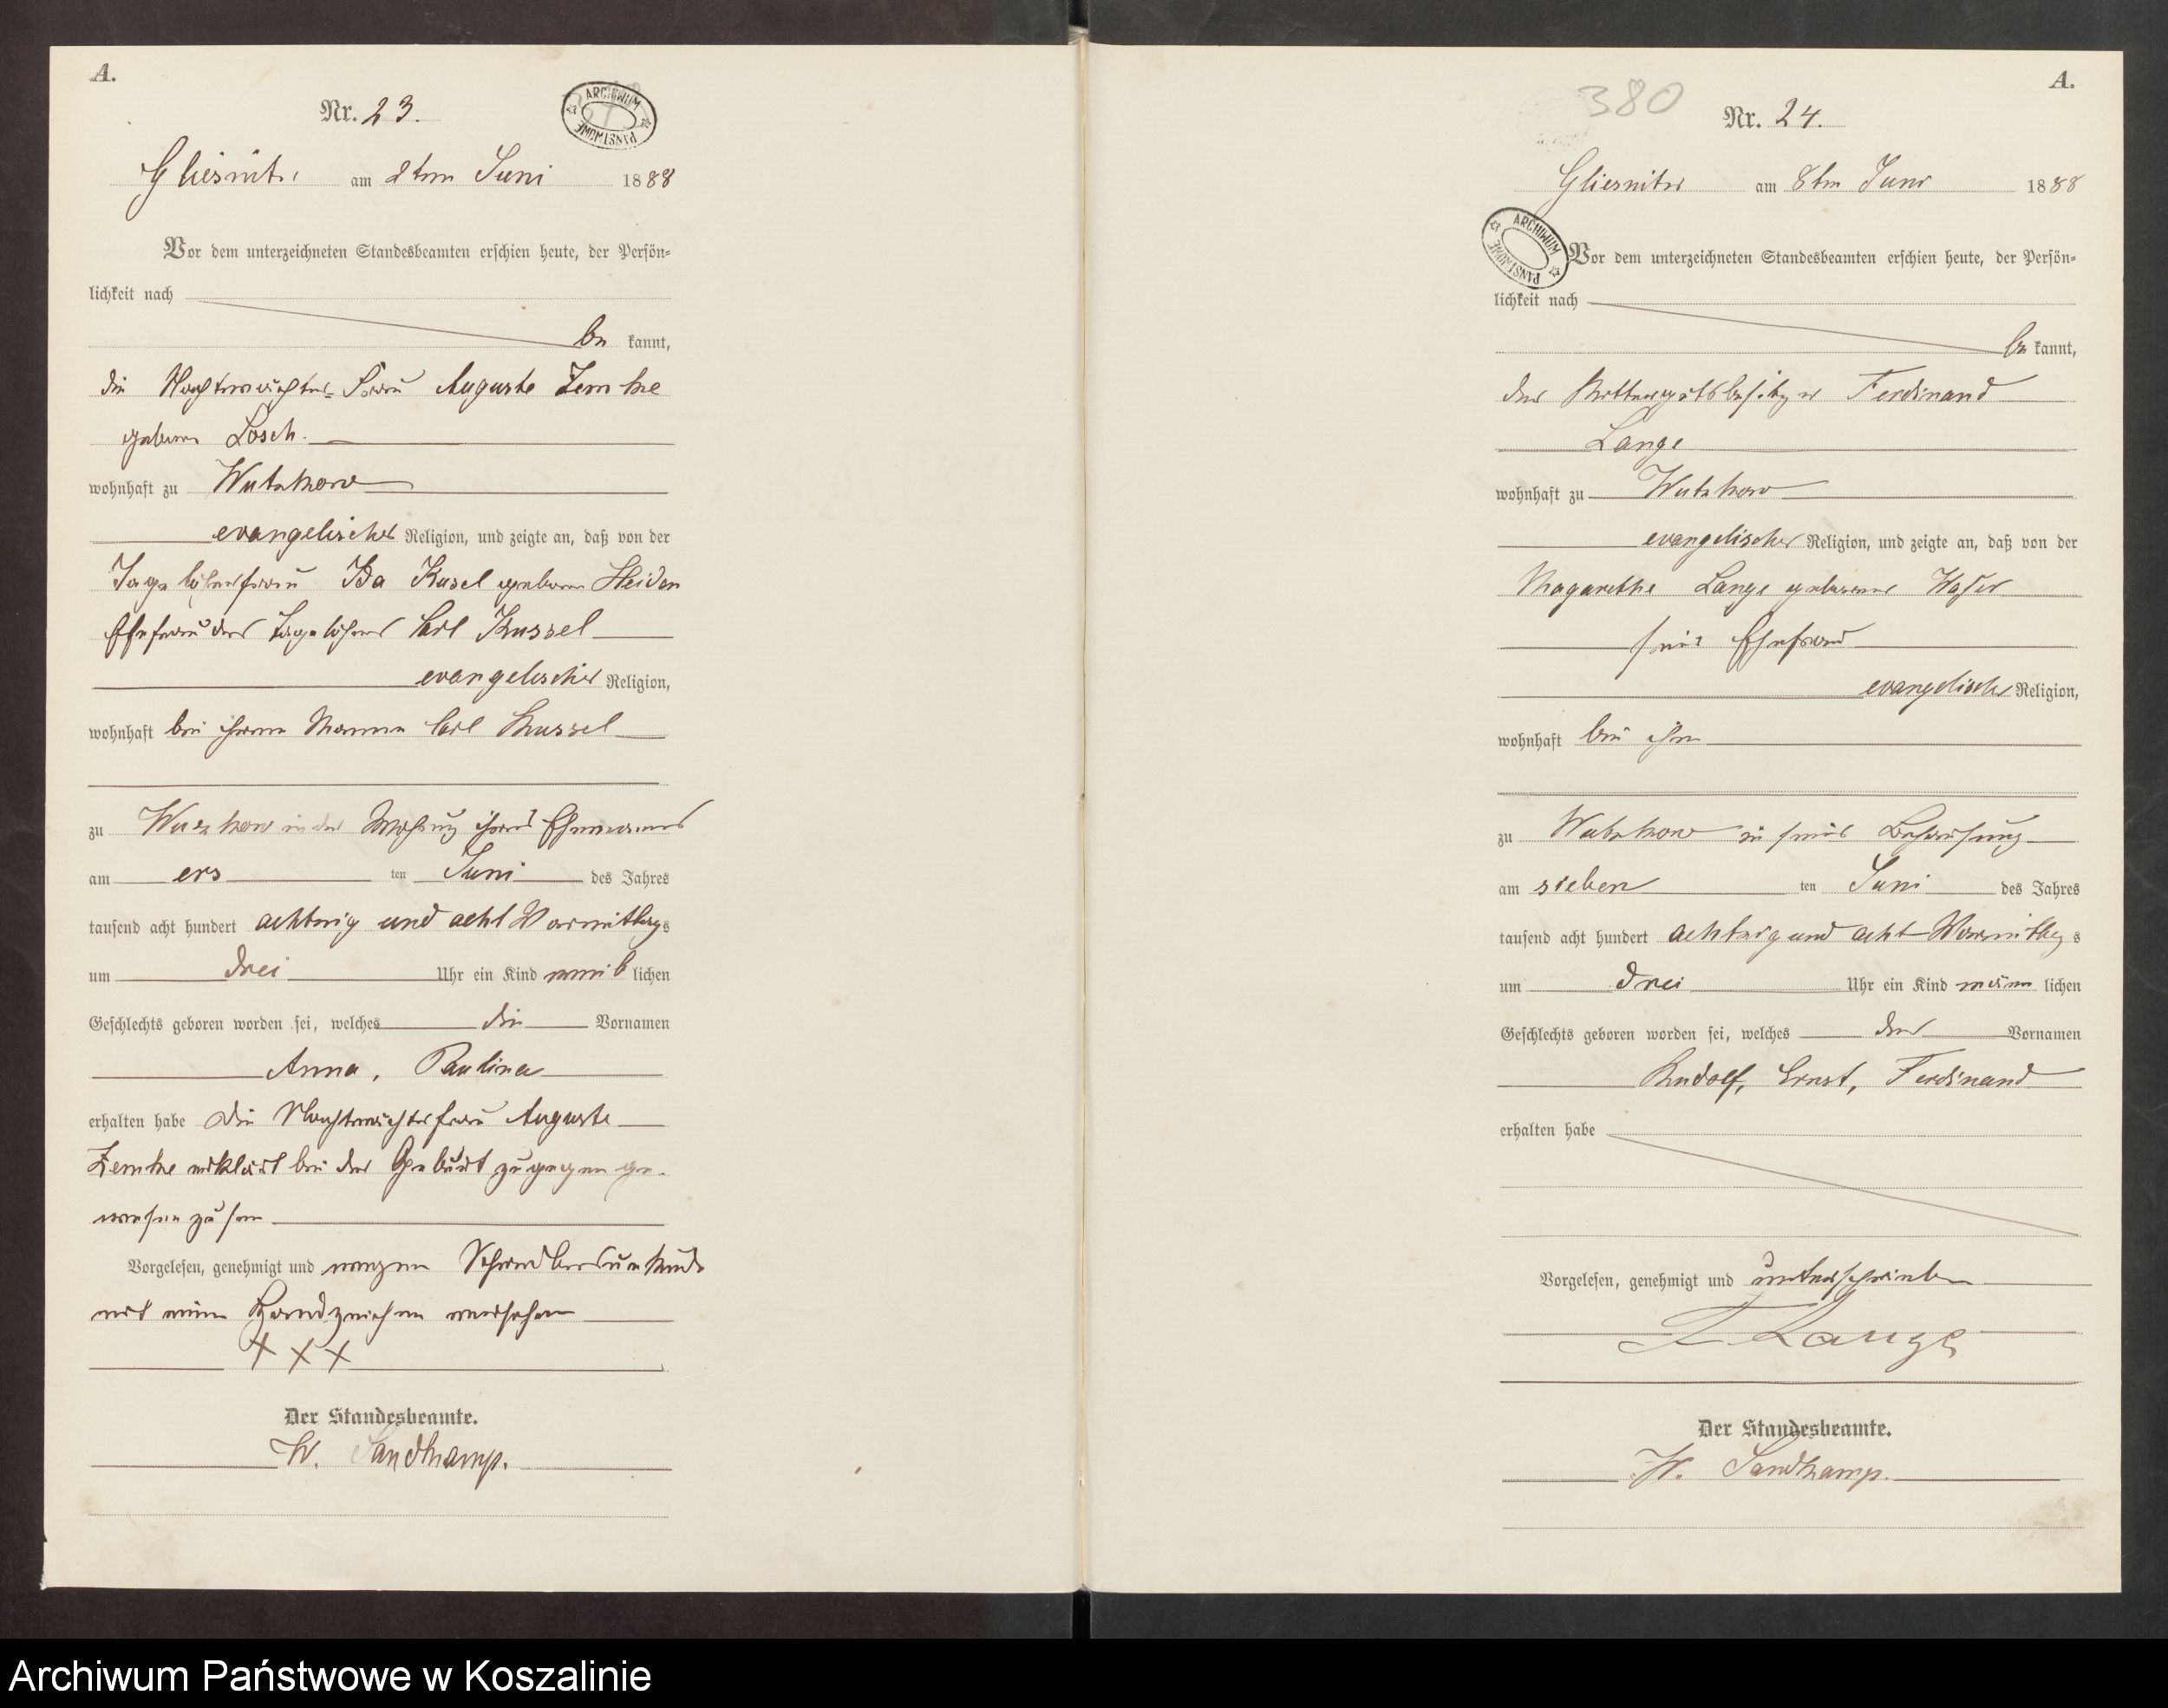 A.
Nr. 23.
ARCHIWUM
PAŃSTWOWE
Gliesnitz, am 2ten Juni 1888
Vor dem unterzeichneten Standesbeamten erschien heute, der Persön-
lichkeit nach
be kannt,
die Nachtwächter-Frau Auguste Zemke
geborne Losch.
wohnhaft zu Wutzkow
evangelischer Religion, und zeigte an, daß von der
Tagelöhnerfrau Ida Kusel geborne Heiden
Ehefrau des Tagelöhners Carl Kussel
evangelischer Religion,
wohnhaft bei ihrem Manne Carl Kussel
zu Wutzkow in der Wohnung ihres Ehemannes
am ers ten Juni des Jahres
tausend acht hundert achtzig und acht Vormittags
um drei Uhr ein Kind weib lichen
Geschlechts geboren worden sei, welches die Vornamen
Anna, Pauline
erhalten habe die Nachtwächterfrau Auguste
Zemke erklärt bei der Geburt zugegen ge-
wesen zu sein
Vorgelesen, genehmigt und wegen Schreibensunkunde
mit einem Handzeichen versehen
+ + +
Der Standesbeamte.
W. Sandkamp.
A.
380
Nr. 24.
Gliesnitz am 8ten Juni 1888
ARCHIWUM
PAŃSTWOWE
Vor dem unterzeichneten Standesbeamten erschien heute, der Persön-
lichkeit nach
be kannt,
der Rittergutsbesitzer Ferdinand
Lange
wohnhaft zu Wutzkow
evangelischer Religion, und zeigte an, daß von der
Magarethe Lange geborene
seine Ehefrau
evangelischer Religion,
wohnhaft bei ihm
zu Wutzkow in seiner Behausung
am sieben ten Juni des Jahres
tausend acht hundert achtzig und acht Vormittags
um drei Uhr ein Kind männ lichen
Geschlechts geboren worden sei, welches der Vornamen
Rudolf, Ernst, Ferdinand
erhalten habe
Vorgelesen, genehmigt und unterschrieben
F Lange
Der Standesbeamte.
W. Sandkamp.
Archiwum Państwowe w Koszalinie